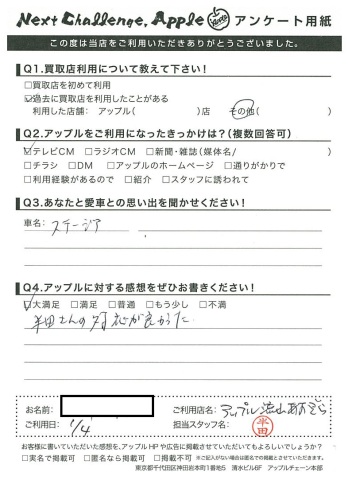 Next Challenge, Apple アンケート用紙
この度は当店をご利用いただきありがとうございました。
Q1.買取店利用について教えて下さい!
□買取店を初めて利用
☑過去に買取店を利用したことがある
利用した店舗: アップル( )店 その他( )
Q2.アップルをご利用になったきっかけは?(複数回答可)
☑テレビCM □ラジオCM □新聞・雑誌(媒体名/ )
□チラシ □DM □アップルのホームページ □通りがかりで
□利用経験があるので □紹介 □スタッフに誘われて
Q3.あなたと愛車との思い出を聞かせください!
車名: ステージア
Q4.アップルに対する感想をぜひお書きください!
☑大満足 □満足 □普通 □もう少し □不満
半田さんの対応が良かった
お名前:
ご利用店名: アップル
ご利用日: 1/4
担当スタッフ名: 半田
お客様に書いていただいた感想を、アップルHPや広告に掲載させていただいてもよろしいでしょうか?
□実名で掲載可 □匿名なら掲載可 □掲載不可 ※ご記入がない場合は匿名での掲載とさせていただきます。
東京都千代田区神田岩本町1番地5 清水ビル6F アップルチェーン本部